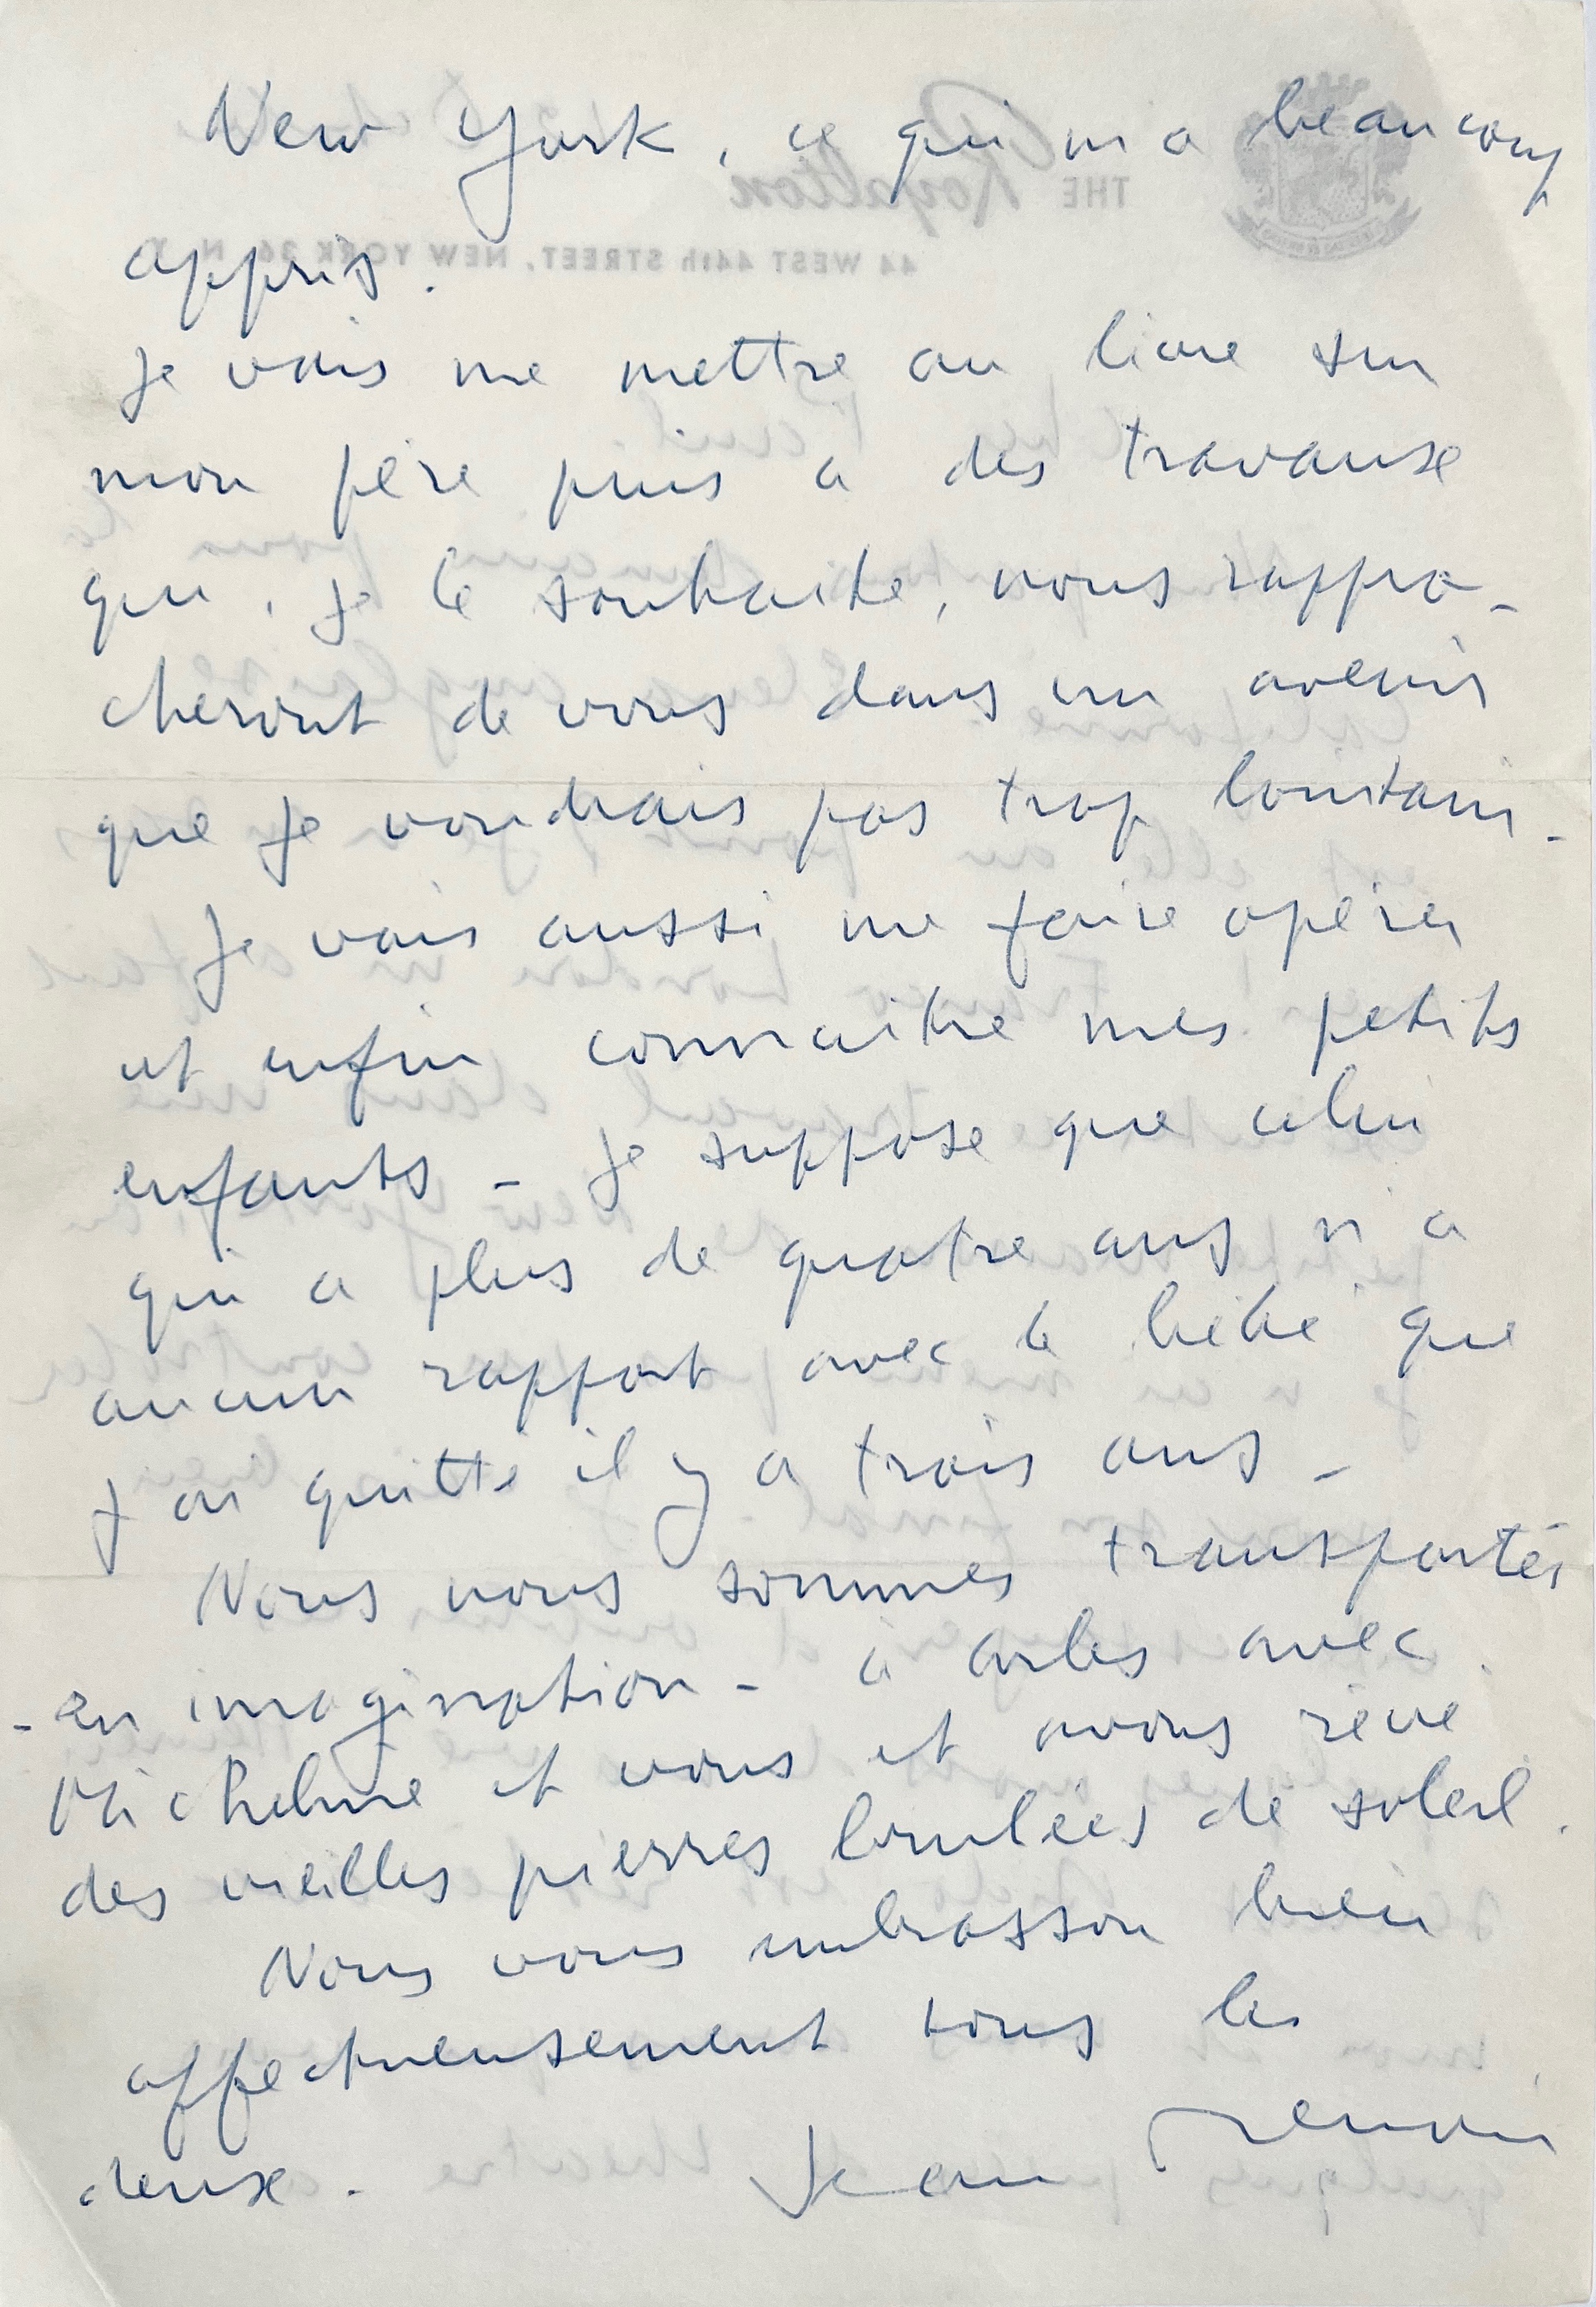 New York, ce qui m'a beaucoup
appris.
Je vais me mettre au livre sur
mon père puis a des travaux
qui, je le souhaite, nous rappro-
cheront de vous dans un avenir
que je voudrais pas trop lointain.
Je vais aussi me faire opérer
et enfin connaitre mes petits
enfants - Je suppose que celui
qui a plus de quatre ans n'a
aucun rapport avec le bébé que
j'ai quitté il y a trois ans -
Nous nous sommes transportés
- en imagination - a Arles avec
Micheline et vous et avons rêvé
des vieilles pierres brulées de soleil.
Nous vous embrasson bien
affectueusement tous les
deux. Jean Renoir
THE Royalton
44 WEST 44th STREET, NEW YORK 36, N. Y.